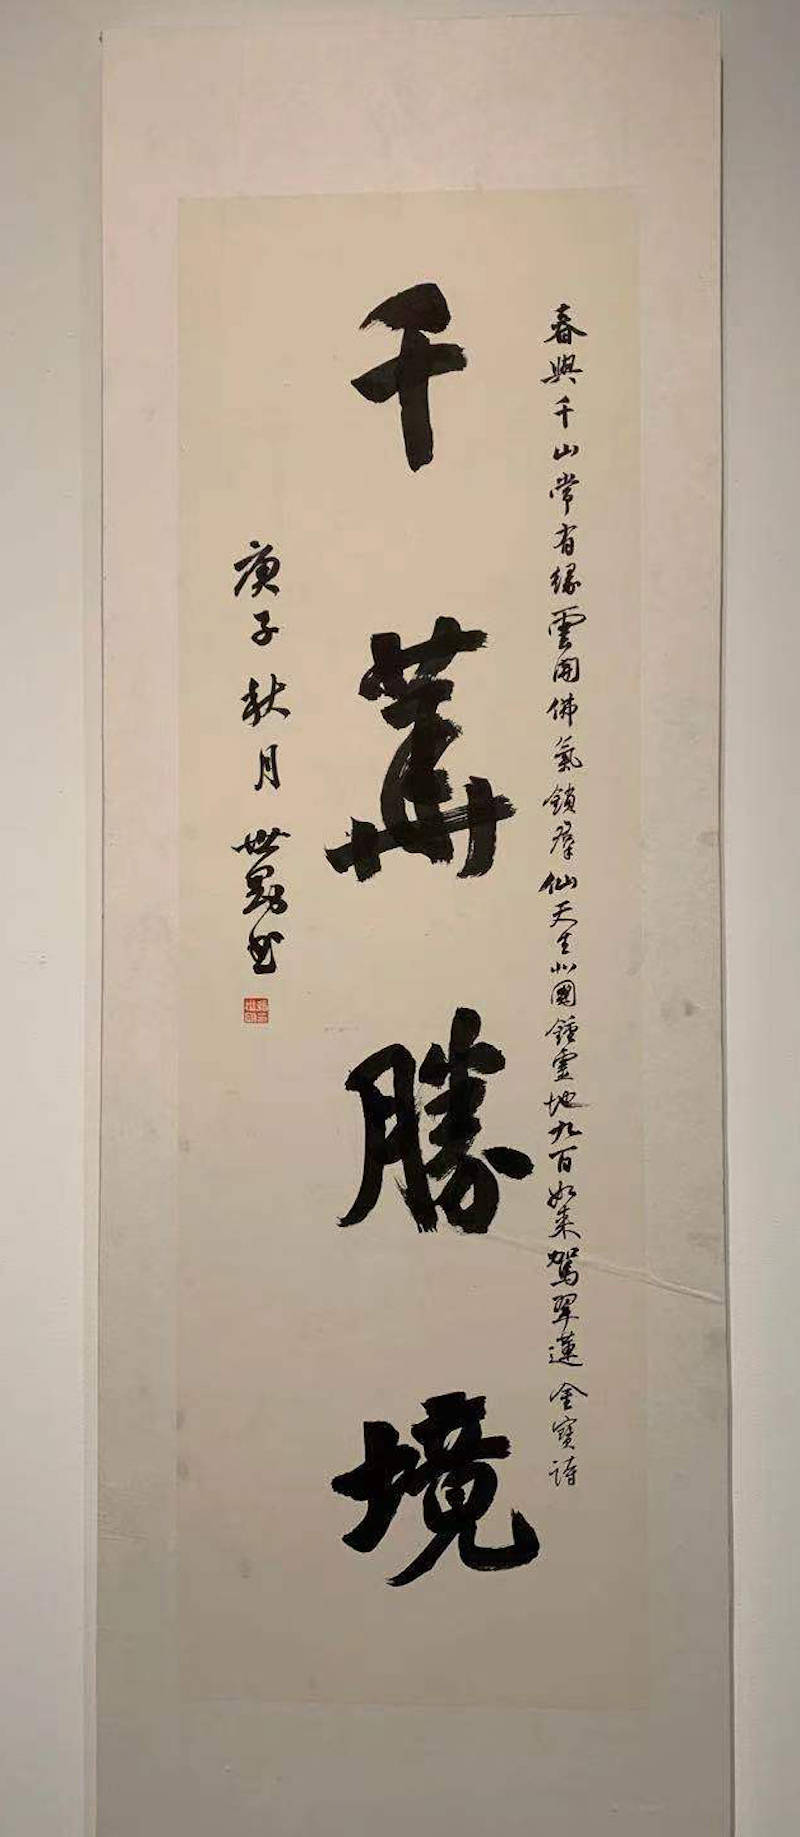 春與千山常有緣雲開佛氣鎖群仙天生北國鍾靈地九百如來駕翠蓮金寶詩
千華勝境
庚子秋月世書